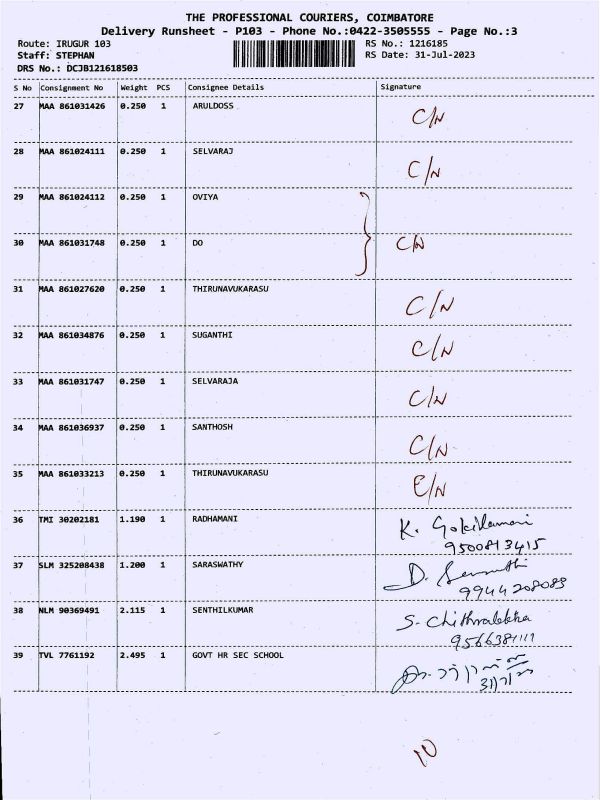 THE PROFESSIONAL COURIERS, COIMBATORE
Delivery Runsheet - P103 - Phone No.:0422-3505555 - Page No.:3
Route: IRUGUR 103 RS No.: 1216185
Staff: STEPHAN RS Date: 31-Jul-2023
DRS No.: DCJB121618503
S No Consignment No Weight PCS Consignee Details Signature
27 MAA 861031426 0.250 1 ARULDOSS C/N
28 MAA 861024111 0.250 1 SELVARAJ C/N
29 MAA 861024112 0.250 1 OVIYA
30 MAA 861031748 0.250 1 DO C/N
31 MAA 861027620 0.250 1 THIRUNAVUKARASU C/N
32 MAA 861034876 0.250 1 SUGANTHI C/N
33 MAA 861031747 0.250 1 SELVARAJA C/N
34 MAA 861036937 0.250 1 SANTHOSH C/N
35 MAA 861033213 0.250 1 THIRUNAVUKARASU C/N
36 TMI 30202181 1.190 1 RADHAMANI K. Gokilamani
9500813415
37 SLM 325208438 1.200 1 SARASWATHY D.
9944208083
38 NLM 90369491 2.115 1 SENTHILKUMAR S. Chithralekha
9566381111
39 TVL 7761192 2.495 1 GOVT HR SEC SCHOOL
10